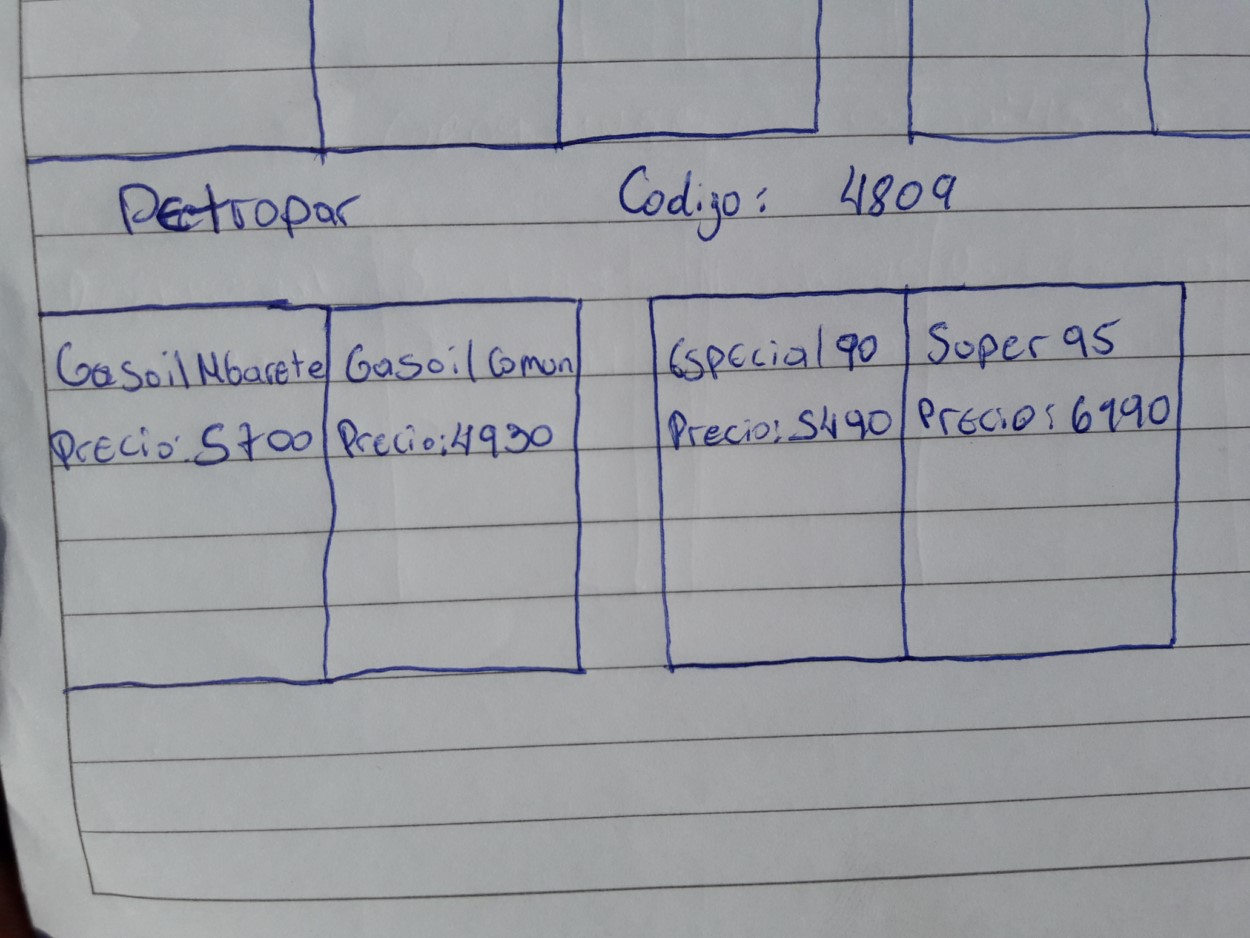 Petropar Codigo: 4809
Gasoil Mbarete Gasoil Comun Especial 90 Super 95
Precio: 5700 Precio: 4930 Precio: 5490 Precio: 6190